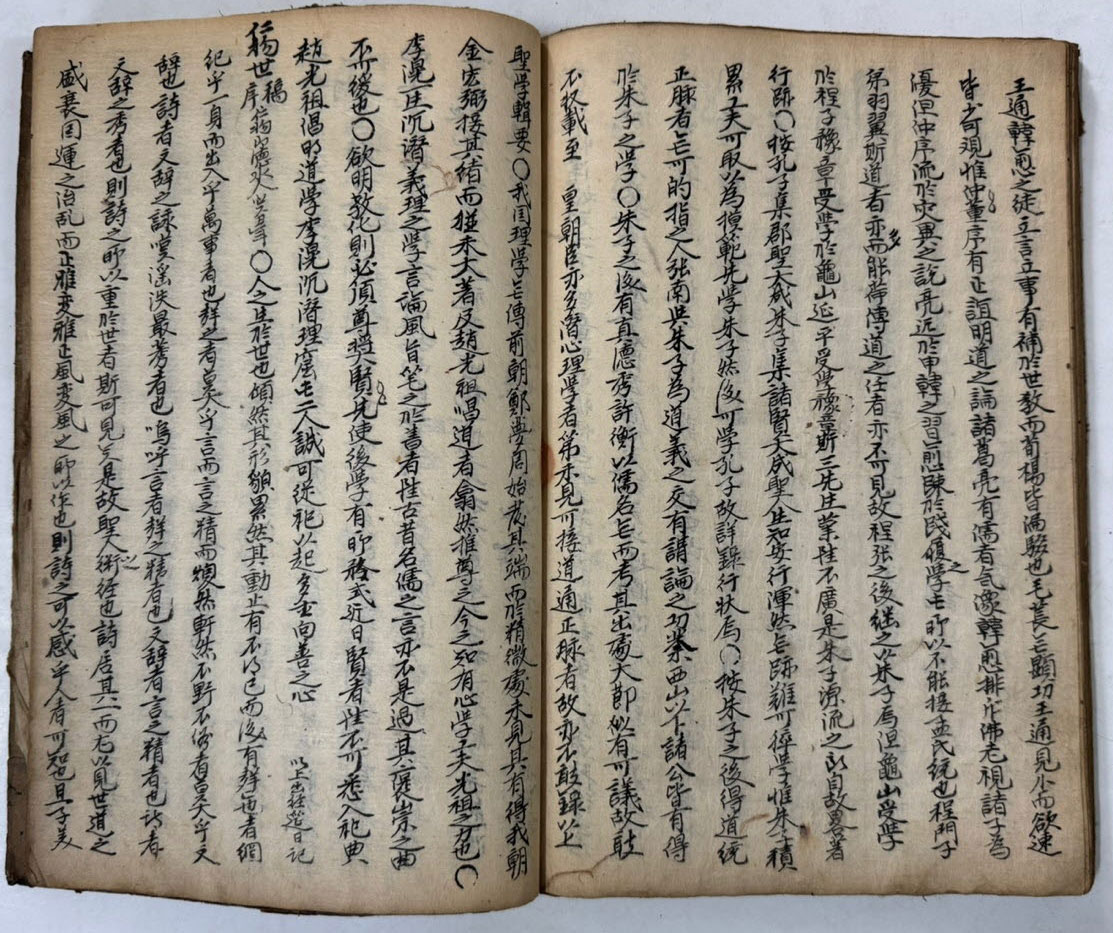 王通韓愈之徒立言立事有補於世教而荀揚皆偏駁也毛萇無顯功王通見小而欲速
皆少可觀惟仲董序有正誼明道之論諸葛亮有儒者气像韓愈排斥佛老視諸子為
優但仲序流於灾異之說亮近於申韓之習愈踈於踐履之學此所以不能接孟氏統也程門子
弟羽翼斯道者亦多而能荷傳道之任者亦不可見故程張之後継之以朱子焉但龜山受學
於程子豫章受學於龜山延平受學豫章斯三先生業雖不廣是朱子源流之所自故畧著
行跡〇按孔子集群聖大成朱子集諸賢大成聖人生知安行渾然無跡難可得學惟朱子積
累工夫可取以為模範先學朱子然後可學孔子故詳錄行狀焉〇按朱子之後得道統
正脉者無可的指之人張南與朱子為道義之交有講論之功蔡西山以下諸公皆有得
於朱子之學〇朱子之後有真德秀許衡以儒名世而考其出處大節似有可議故玆
不敢載至 皇朝臣亦多潛心理學者第未見可接道通正脉者故亦不敢錄以上
聖學輯要〇我国理學無傳前朝鄭夢周始發其端而於精微處未見其有得我朝
金宏弼接其緒而猶未大著及趙光祖唱道者翕然推尊之今之知有心學夫光祖之力也〇
李滉生沉潛義理之學言論風旨笔之於書者雖古昔名儒之言亦不是過其褒崇之典
不可後也〇欲明教化則必須尊獎先賢使後學有所矜式近日賢者雖不可悉入祀典
趙光祖倡明道學李滉沉潛理窟此二人誠可從祀以起多士向善之心 以上出經筵日記
仁物世稿序 〇人之生於世也傾然其形頹累然其動止有不得已而後有辭

紀乎一身而出入乎萬事者也辭之者莫乎言而言之精而煥然軒然不野不俗者莫乎文
辭也詩者文辭之詠嘆滛泆最著者也嗚呼言者辭之精者也文辭者言之精者也詩者
文辭之秀者也則詩之所以重於世者斯可見矣是故聖人之術經也詩居其一而尤以見世道之
盛衰国運之治乱而正雅変雅正風変風之所以作也則詩之可以感乎人者可知也且子美